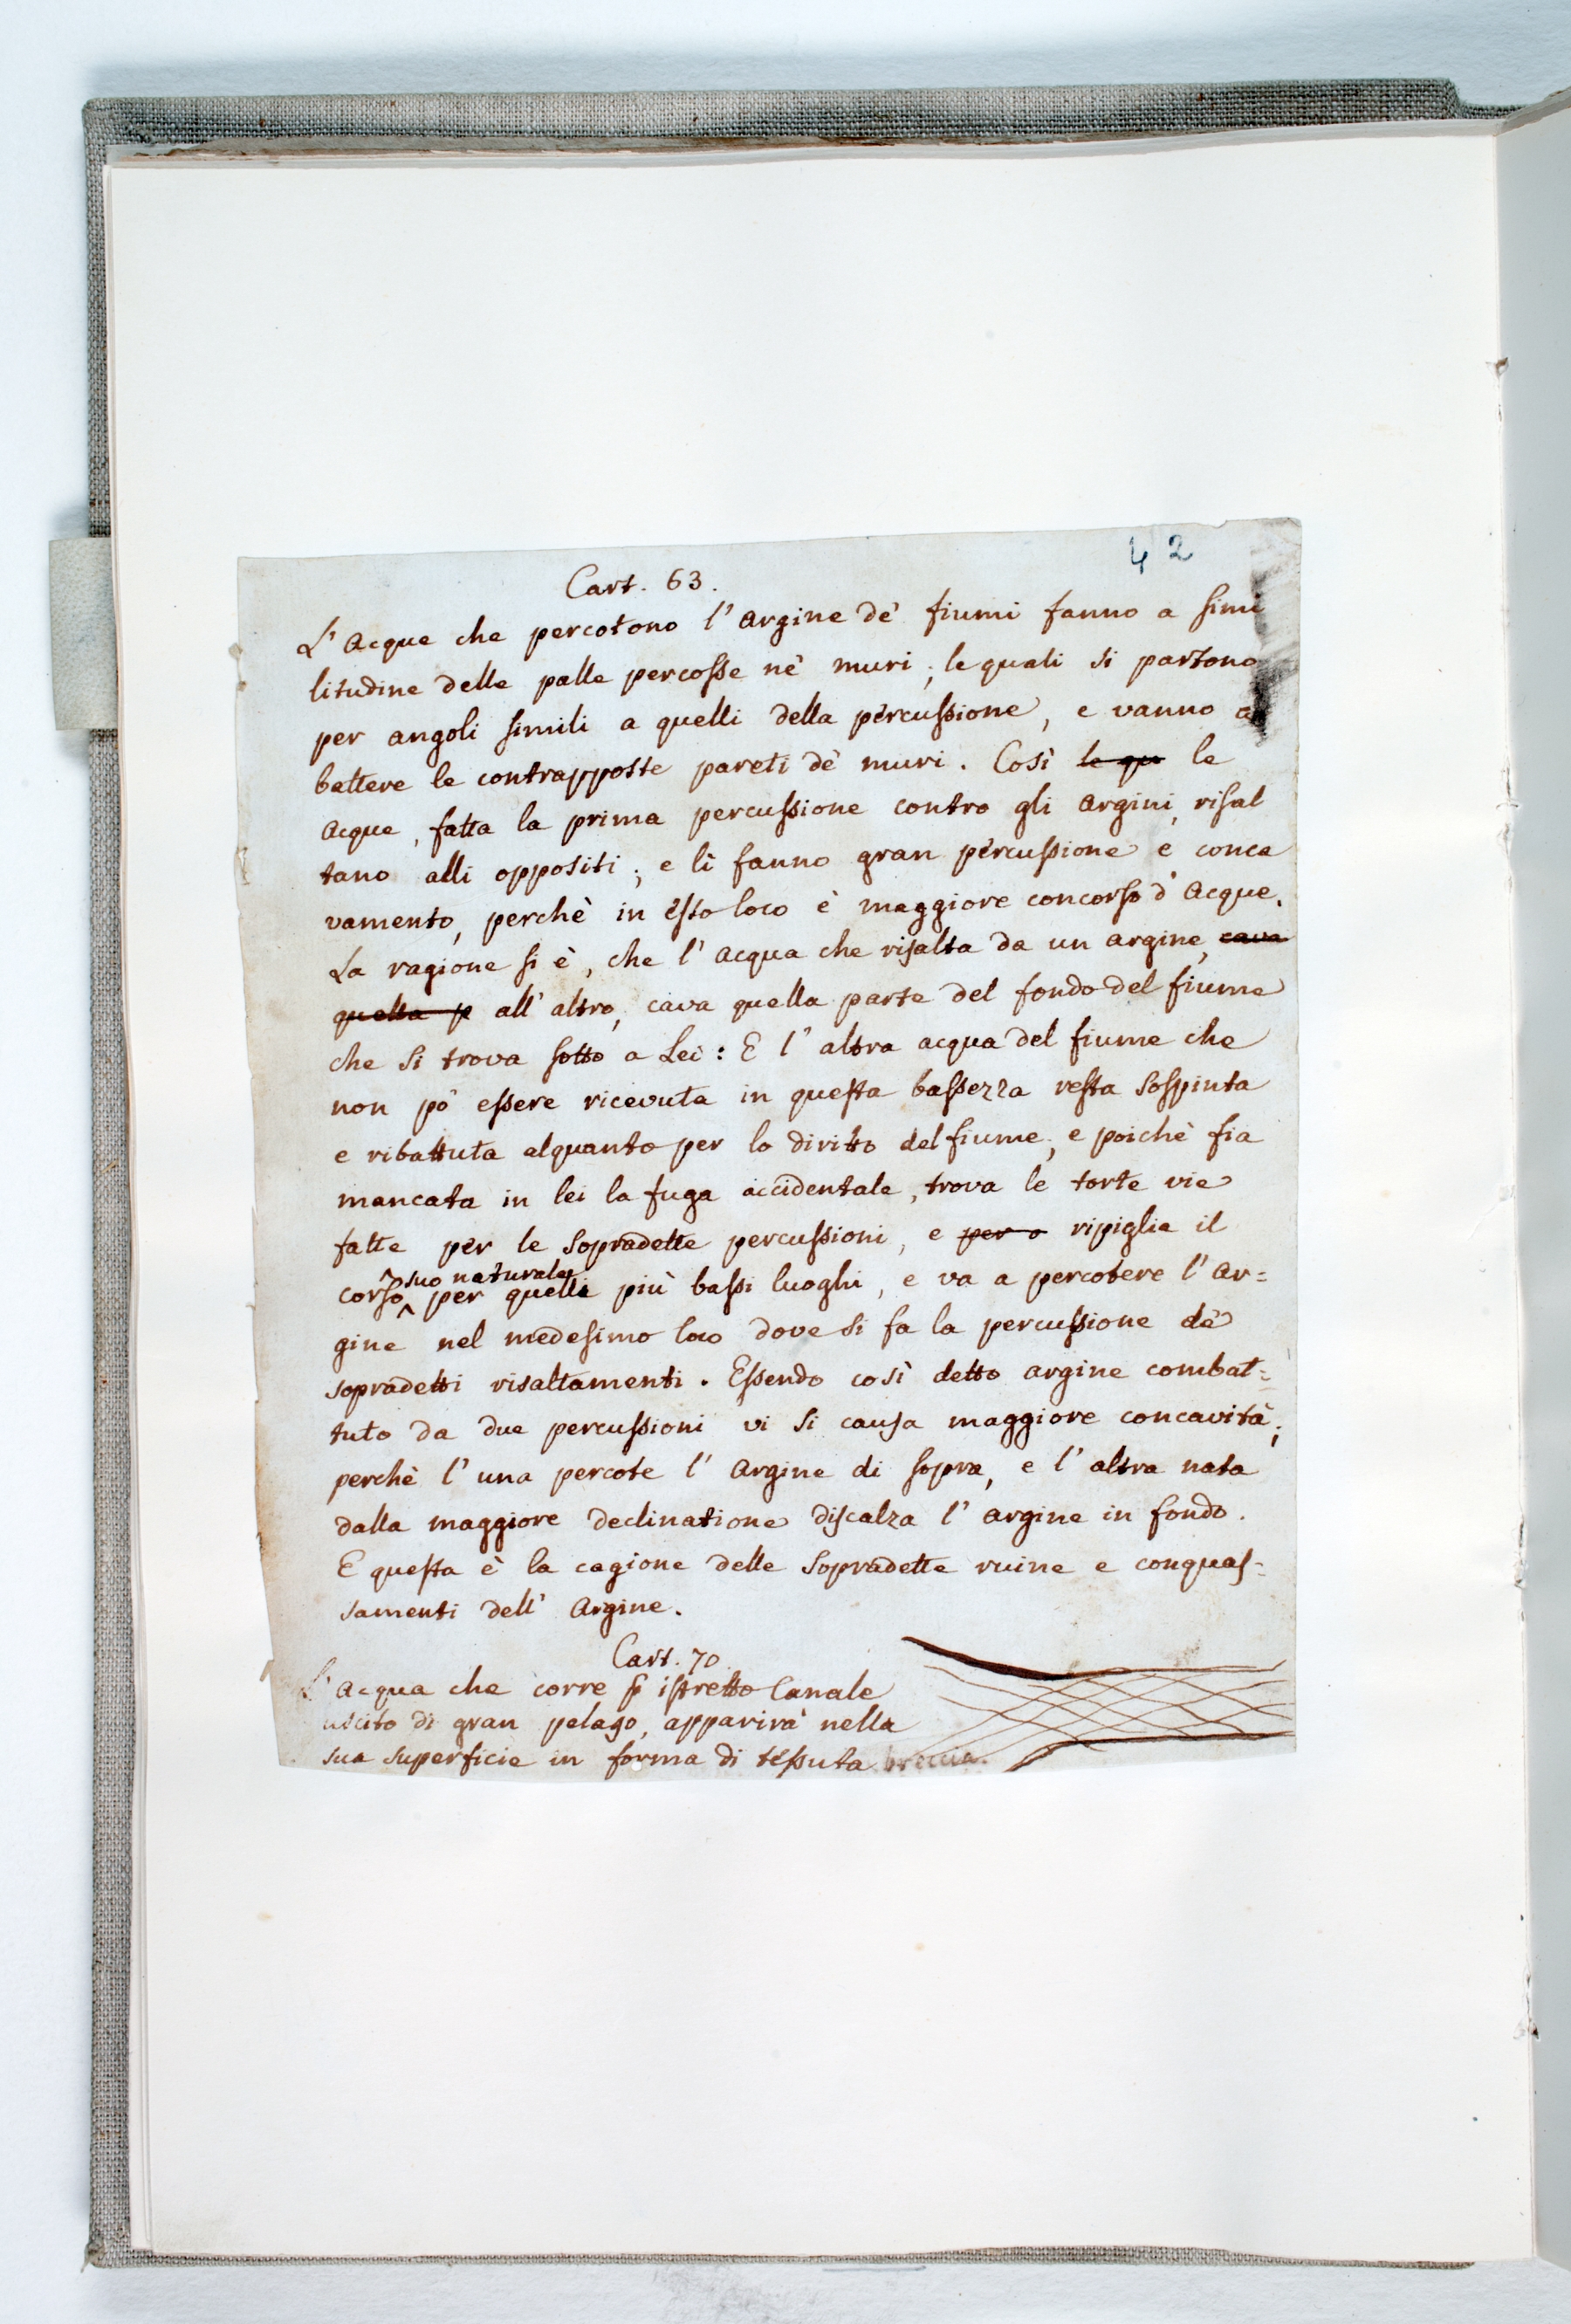 42
Cart. 63.
L' Acque che percotono l' Argine de' fiumi fanno a simi
litudine delle palle percosse ne' muri; le quali si partono
per angoli simili a quelli della percussione, e vanno a
battere le contrapposte pareti de' muri. Così le qu le
Acque, fatta la prima percussione contro gli Argini, risal
tano alli oppositi; e lì fanno gran percussione e conca
vamento, perchè in esso loco è maggiore concorso d' Acque.
La ragione si è, che l' Acqua che risalta da un argine, cava
quella p all' altro, cava quella parte del fondo del fiume
che si trova sotto a Lei: E l' altra acqua del fiume che
non pò essere ricevuta in questa bassezza resta sospinta
e ribattuta alquanto per lo diritto del fiume; e poichè fia
mancata in lei la fuga accidentale, trova le torte vie
fatte per le sopradette percussioni, e per o ripiglia il
corso suo naturale per quelli più bassi luoghi, e va a percotere l' Ar=
gine nel medesimo loco dove si fa la percussione de'
sopradetti risaltamenti. Essendo così detto argine combat=
tuto da due percussioni vi si causa maggiore concavità;
perchè l' una percote l' Argine di sopra, e l' altra nata
dalla maggiore declinatione discalza l' argine in fondo.
E questa è la cagione delle sopradette ruine e conquas=
samenti dell' Argine.
Cart. 70
L' Acqua che corre p istretto Canale
uscito di gran pelago, apparirà nella
sua superficie in forma di tessuta breccia.